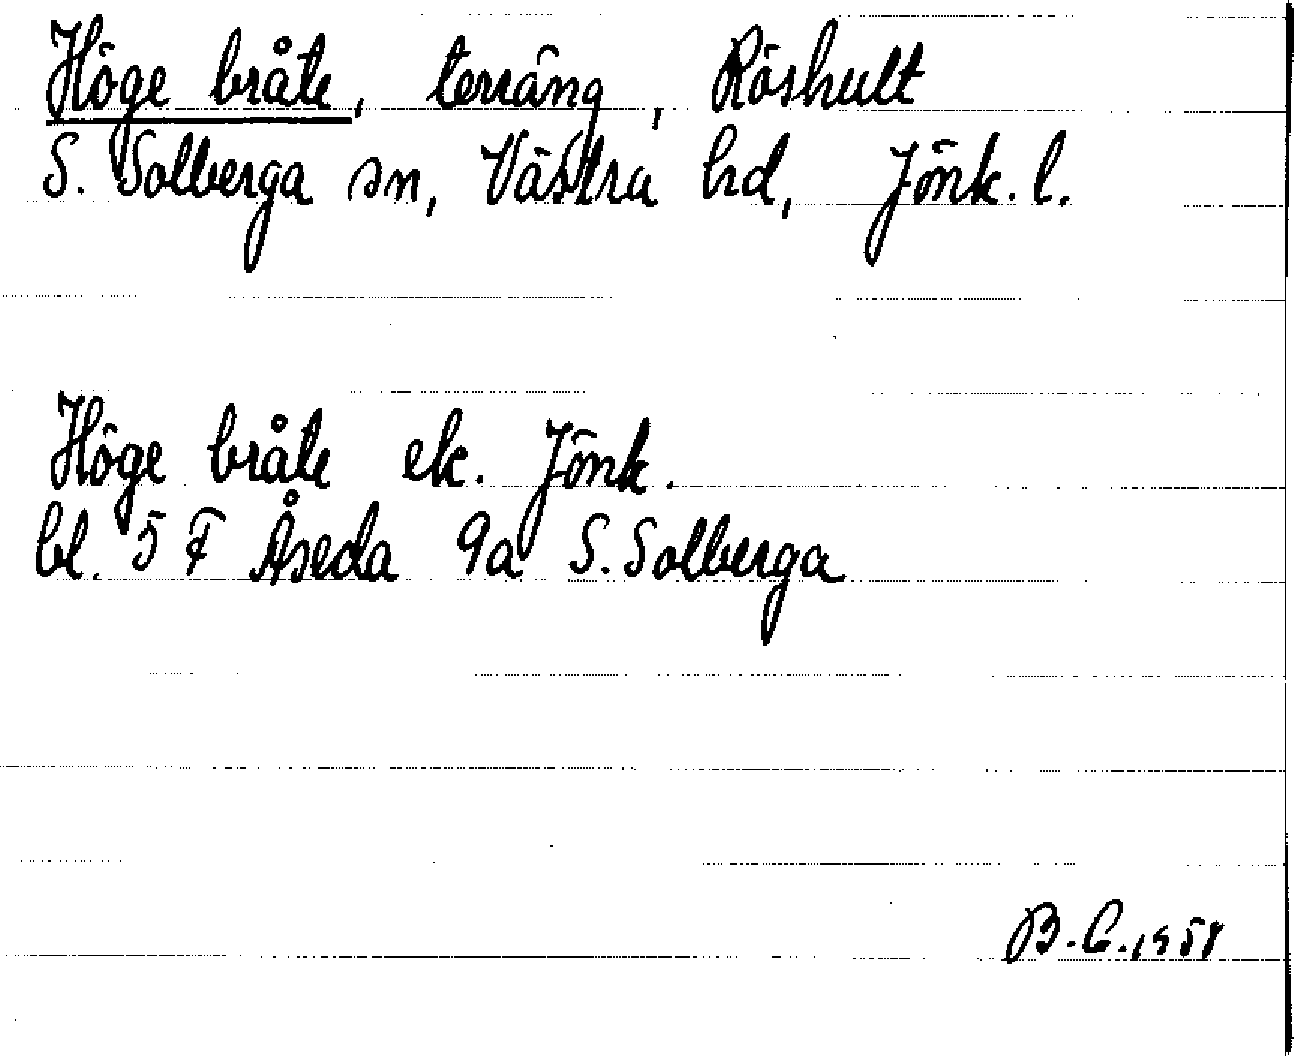 Höge bråte, terräng, Röshult
S. Solberga sn, Västra hd, Jönk. l.
Höge bråte ek. Jönk.
bl. 5 F Åseda 9a S. Solberga
B.C. 1958